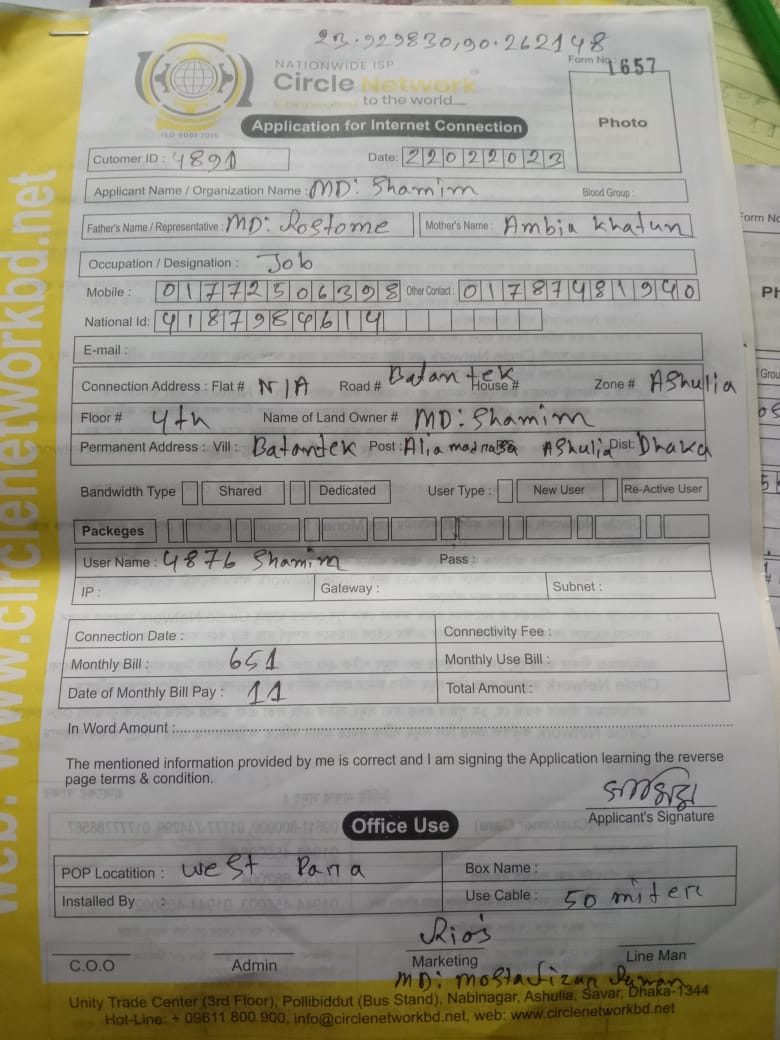 23.929830,90.262148
NATIONWIDE ISP
Circle Network
to the world....
ISO 9001:2015
Form No 1657
Photo
Application for Internet Connection
Cutomer ID : 4891 Date: 22022023
Applicant Name / Organization Name : MD: Shamim Blood Group :
Father's Name / Representative : MD: Rostome Mother's Name : Ambia Khatun
Occupation / Designation : Job
Mobile : 01772506398 Other Contact : 01787481940
National Id: 4187984614
E-mail :
Connection Address : Flat # N/A Road # Batan tek House # Zone # AShulia
Floor # 4th Name of Land Owner # MD: Shamim
Permanent Address : Vill : Batantek Post : Alia madrasa AShulia Dist: Dhaka
Bandwidth Type Shared Dedicated User Type : New User Re-Active User
Packeges
User Name : 4876 Shamim Pass :
IP : Gateway : Subnet :
Connection Date : Connectivity Fee :
Monthly Bill : 651 Monthly Use Bill :
Date of Monthly Bill Pay : 11 Total Amount :
In Word Amount :
The mentioned information provided by me is correct and I am signing the Application learning the reverse
page terms & condition.
Applicant's Signature
Office Use
POP Locatition : West Para Box Name :
Installed By : Use Cable : 50 miter
C.O.O Admin Marketing Line Man
Unity Trade Center (3rd Floor), Pollibiddut (Bus Stand), Nabinagar, Ashulia, Savar, Dhaka-1344
Hot-Line: + 09611 800 900, info@circlenetworkbd.net, web: www.circlenetworkbd.net
web: www.circlenetworkbd.net
Form No